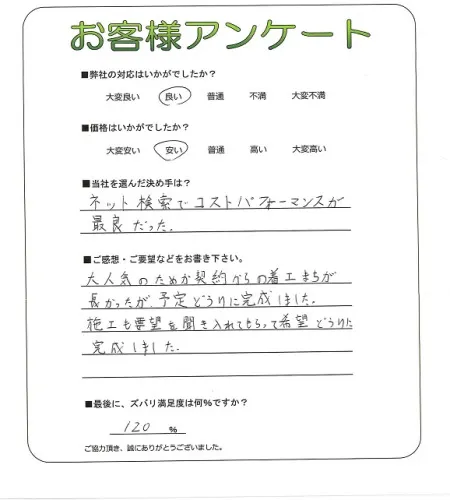 お客様アンケート
■弊社の対応はいかがでしたか？
大変良い 良い 普通 不満 大変不満
■価格はいかがでしたか？
大変安い 安い 普通 高い 大変高い
■当社を選んだ決め手は？
ネット検索でコストパフォーマンスが
最良だった.
■ご感想・ご要望などをお書き下さい。
大人気のためか契約からの着工まちが
長かったが予定どうりに完成しました.
施工も要望を聞き入れてもらって希望どうりに
完成しました.
■最後に、ズバリ満足度は何%ですか？
120 %
ご協力頂き、誠にありがとうございました。